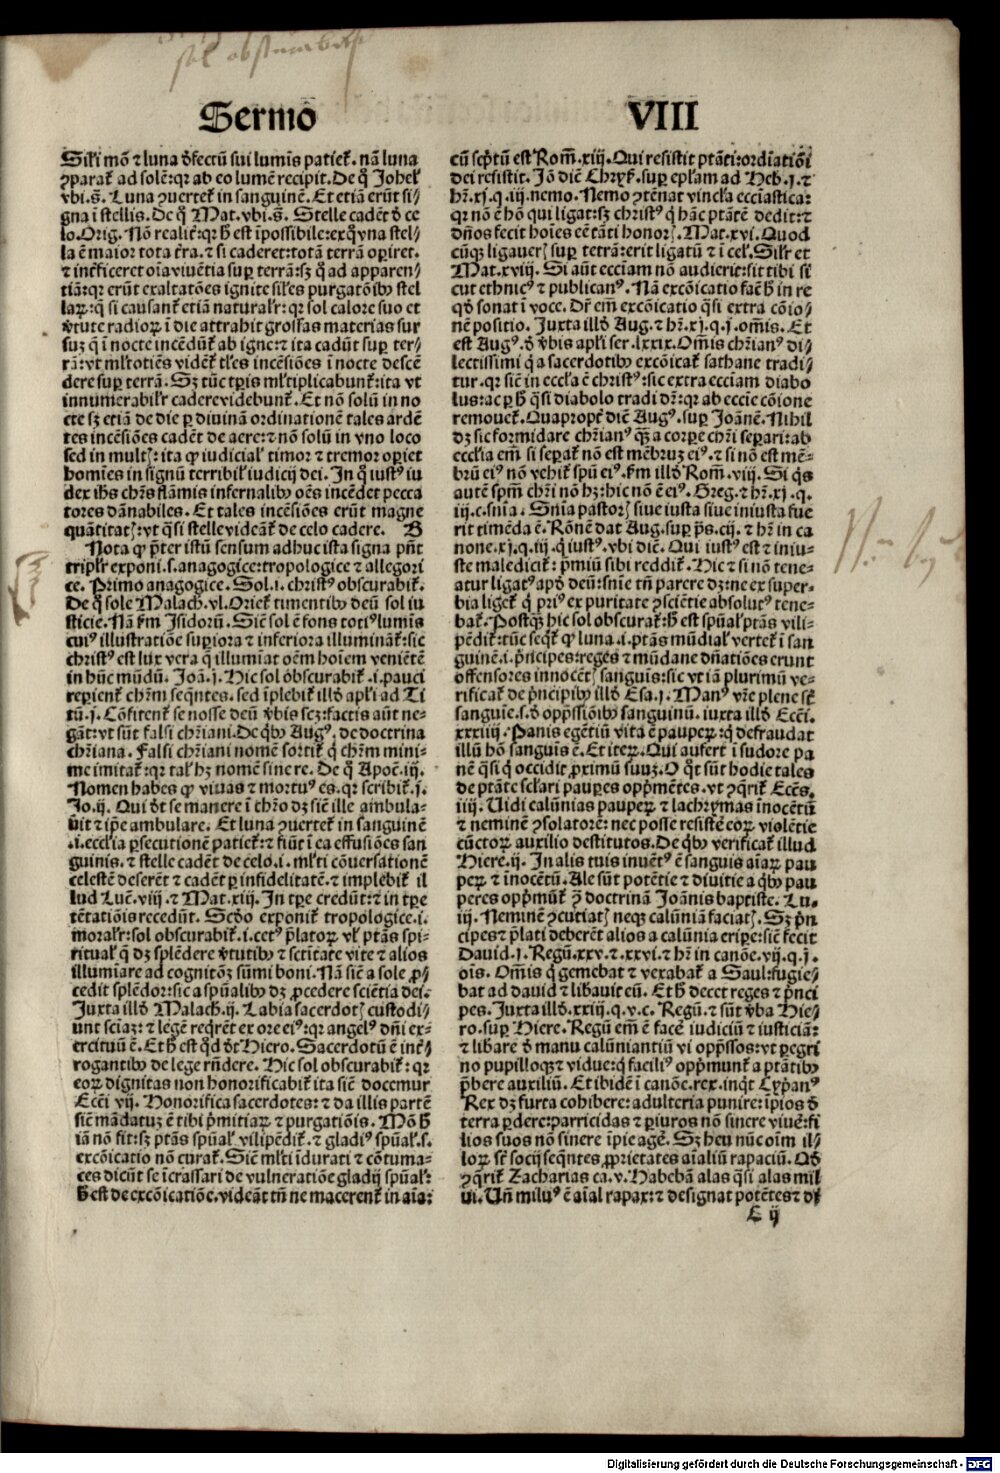 sol obscurabitur
Sermō VIII
Sil'i mō ⁊ luna đfectū sui lumīs patieť. nā luna
ꝯparať ad solē: qꝛ ab eo lumē recipit. De q̄ Johel'
vbi.s̄. Luna ꝯuerteť in sanguinē. Et etiā erūt si/
gna ī stellis. De q̄ Mat. vbi.s̄. Stelle cadēt đ ce
lo. Orig. Nō realiť: qꝛ ħ est īpossibile: exꝙ vna stel/
la ē maior tota ťra. ⁊ si caderet: totā terrā operiret.
⁊ inťficeret oīa viuētia sup terrā: sꝫ q̄ ad apparen/
tiā: qꝛ erūt exaltatōes ignite siles purgatōibꝰ stel
laꝝ. q̄ si causanť etiā naturalr: qꝛ sol calore suo et
v̓tute radioꝝ ī die attrahit grossas materias sur
suꝫ q̄ ī nocte incēdūť ab igne: ⁊ ita cadūt sup ter/
rā: vt ml'totiēs vidēť tl'es incēsiōes ī nocte descē
dere sup terrā. Sꝫ tūc tꝑis ml'tiplicabunť: ita vt
innumerabil'r cadere videbunť. Et nō solū in no
cte sꝫ etiā de die ꝑ diuinā ordinationē tales ardē
tes incēsiōes cadēt de aere: ⁊ nō solū in vno loco
sed in mult': ita ꝙ iudicial' timor ⁊ tremor oꝑiet
homīes in signū terribil' iudicij dei. In q̄ iustꝰ iu
dex ihs chr̄s flāmis infernalibꝰ oēs incēdet pecca
tores dānabiles. Et tales incēsiōes erūt magne
quātitat': vt q̄si stelle videāť de celo cadere. B
Nota ꝙ p̄ter istū sensum adhuc ista signa pn̄t
tripl'r exponi.s. anagogice: tropologice ⁊ allegori
ce. Primo anagogice. Sol.i. christꝰ obscurabiť.
De q̄ sole Malach. vl. Orieť timentibꝰ deū sol iu
sticie. Nā ẜm Isidorū. Sic̄ sol ē fons totiꝰ lumīs
cuiꝰ illustratiōe suꝑiora ⁊ inferiora illumināť: sic
christꝰ est lux vera q̄ illumīat oēm hoīem veniētē
in hūc mūdū. Joā.j. Hic sol obscurabiť.i. pauci
reꝑienť chrm̄i seqn̄tes. sed īplebiť illđ apl'i ad Ti
tū.j. Cōfitenť se nosse deū v̓bis scꝫ: factis aūt ne-
gāt: vt sūt falsi chr̄iani. De qbꝰ Augꝰ. de doctrina
chr̄iana. Falsi chr̄iani nomē sortiť q̄ chrm̄ mini-
me imitať: qꝛ tal' hꝫ nomē sine re. De q̄ Apoc̄.iij.
Nomen habes ꝙ viuas ⁊ mortuꝰ es. qꝛ scribiť.j.
Jo.ij. Qui đt se manere ī chr̄o dꝫ sic̄ ille ambula-
uit ⁊ ip̄e ambulare. Et luna ꝯuerteť in sanguinē
.i. eccl'ia ꝑsecutionē patieť: ⁊ fiūt ī ea effusiōes san
guinis. ⁊ stelle cadēt de celo.i. ml'ti cōuersationē
celestē deserēt ⁊ cadēt ꝑ infidelitatē. ⁊ implebiť il
lud Luc̄. viij. ⁊ Mat. xiij. In tꝑe credūt: ⁊ in tꝑe
tētatiōis recedūt. Scđo exponiť tropologice.i.
moral'r: sol obscurabiť.i. cetꝰ p̄latoꝝ vl' ptās spi-
ritual' q̄ dꝫ splēdere v̓tutibꝰ ⁊ sc̄titate vite ⁊ alios
illumīare ad cognitōꝫ sūmi boni. Nā sic̄ a sole ꝓ/
cedit splēdor: sic a spūalibꝰ dꝫ ꝓcedere sciētia dei.
Juxta illđ Malach. ij. Labia sacerdot' custodi/
unt sciaꝫ: ⁊ legē req̄rēt ex ore eiꝰ: qꝛ angelꝰ dn̄i ex-
ercituū ē. Et ħ est qđ đt Hiero. Sacerdotū ē inť/
rogantibꝰ de lege rn̄dere. Hic sol obscurabiť: qꝛ
eoꝝ dignitas non honorificabiť ita sic̄ docemur
Ecc̄i vij. Honorifica sacerdotes: ⁊ da illis partē
sic̄ mādatuꝫ ē tibi p̄mitiaꝝ ⁊ purgatiōis. Mō ħ
iā nō fit: sꝫ ptās spūal' vilipēdiť. ⁊ gladiꝰ spūal'.s.
excōicatio nō curať. Sic̄ ml'ti īdurati ⁊ cōtuma-
ces dicūt se īcrassari de vulneratiōe gladij spūal':
ħ est de excōicatiōe. videāt tn̄ ne macerenť in aīa:
cū scp̄tū est Rom̄. xiij. Qui resistit ptāti: ordīatiōi
dei resistit. Jō dic̄ Chryſ. sup epl'am ad Heb.j. ⁊
hr̄. xj. q. iij. nemo. Nemo ꝯtēnat vincl'a eccl'astica:
qꝛ nō ē hō qui ligat: sꝫ christꝰ q̄ hāc ptātē dedit: ⁊
dn̄os fecit hoīes cē tāti honor'. Mat. xvi. Quod
cūq̨ ligauer' sup terrā: erit ligatū ⁊ ī cel'. Sil'r et
Mat. xviij. Si aūt ecciam nō audierit: sit tibi sic̄
cut ethnicꝰ ⁊ publicanꝰ. Nā excōicatio fac̄ ħ in re
qđ sonat ī voce. Dr̄ em̄ excōicatio q̄si extra cōio/
nē positio. Juxta illđ Aug. ⁊ hr̄. xj. q. j. om̄is. Et
est Augꝰ. đ v̓bis apl'i ser. lxxix. Om̄is chr̄ianꝰ di/
lectissimi q̄ a sacerdotibꝰ excōicať sathane tradi/
tur. qꝛ sic̄ in eccl'a ē christꝰ: sic extra ecciam diabo
lus: ac ꝑ ħ q̄si diabolo tradi dr̄: qꝛ ab eccie cōione
remoueť. Quapropť dic̄ Augꝰ. sup Joānē. Nihil
dꝫ sic formidare chr̄ianꝰ q̄ꝫ a corꝑe chr̄i seꝑari: ab
eccl'ia em̄ si seꝑať nō est mēbruꝫ eiꝰ. ⁊ si nō est mē-
brū eiꝰ nō vehiť spū eiꝰ. ẜm illđ Rom̄. viij. Si q̄s
autē spm̄ chr̄i nō hꝫ: hic nō ē eiꝰ. Greg. ⁊ hr̄. xj. q.
iij. c. snīa. Snīa pastor' siue iusta siue iniusta fue
rit timēda ē. Rōnē dat Aug. sup ps̄. cij. ⁊ hr̄ in ca
none. xj. q. iij. q̄ iustꝰ. vbi dic̄. Qui iustꝰ est ⁊ iniu-
ste maledicit̄: p̄miū sibi reddiť. Hic ⁊ si nō tene-
atur ligatꝰ apđ deū: snīe tn̄ parcere dꝫ: ne ex super-
bia ligeť q̄ priꝰ ex puritate ꝯsciētie absolutꝰ tene-
bať. Postq̄ꝫ hic sol obscurať: ħ est spūal' ptās vili-
pēdiť: tūc seqť ꝙ luna.i. ptās mūdial' verteť ī san
guinē.i. pn̄cipes: reges ⁊ mūdane dn̄atiōes erunt
offensores innocēt' sanguīs: sic vt iā plurimū ve-
rificať de pn̄cipibꝰ illđ Esa.j. Manꝰ vr̄e plene st̄
sanguīe.s. đ opp̄ssiōibꝰ sanguinū. iuxta illđ Ecc̄i.
xxxiiij. Panis egētiū vita ē paupeꝝ: q̄ defraudat
illū hō sanguīs ē. Et iteꝝ. Qui aufert ī sudore pa
nē q̄si q̄ occidit ꝓximū suuꝫ. O qt̄ sūt hodie tales
de ptāte scl'ari pauꝑes opp̄mētes. vt ꝯq̄riť Ecc̄s.
iiij. Uidi calūnias paupeꝝ ⁊ lachrymas īnocētū
⁊ neminē ꝯsolatorē: nec posse resistē coꝝ violētie
cūctoꝝ auxilio destitutos. De qbꝰ verificať illud
Hiere. ij. In alis tuis inuētꝰ ē sanguis aīaꝝ pau
peꝝ ⁊ īnocētū. Ale sūt potētie ⁊ diuitie a qbꝰ pau
peres opp̄munť ꝯ̄ doctrinā Joānis baptiste. Lu.
iij. Neminē ꝯcutiat' neqꝫ calūniā faciat'. Sꝫ pn̄
cipes ⁊ p̄lati deberēt alios a calūnia eripe: sic̄ fecit
Dauid.j. Regū. xxv. ⁊ xxvi. ⁊ hr̄ in canōe. vij. q. j.
oīs. Om̄is q̄ gemebat ⁊ vexabať a Saul: fugie/
bat ad dauid ⁊ libauit eū. Et ħ decet reges ⁊ pn̄ci
pes. Juxta illđ. xxiij. q. v. c. Regū. ⁊ sūt v̓ba Hie/
ro. sup Hiere. Regū em̄ ē facē iudiciū ⁊ iusticiā:
⁊ libare đ manu calūniantiū vi opp̄ssos: vt ꝑegri
no pupilloqꝫ ⁊ vidue: q̄ faciliꝰ opp̄munť a ptātibꝰ
p̄bere auxiliū. Et ibidē ī canōe. rex. inqt Cypanꝰ
Rex dꝫ furta cohibere: adulteria punire: īpios đ
terra ꝑdere: parricidas ⁊ ꝑiuros nō sinere viuē: fi
lios suos nō sinere īpie agē. Sꝫ heu nūc oīm il/
loꝝ st̄ socij seqn̄tes ꝓprietates aīaliū rapaciū. Qđ
ꝯq̄riť Zacharias ca. v. Habebā alas q̄si alas mil
ui. Un̄ miluꝰ ē aīal rapax: ⁊ designat potētes ⁊ dī
E ij
Digitalisierung gefördert durch die Deutsche Forschungsgemeinschaft - DFG